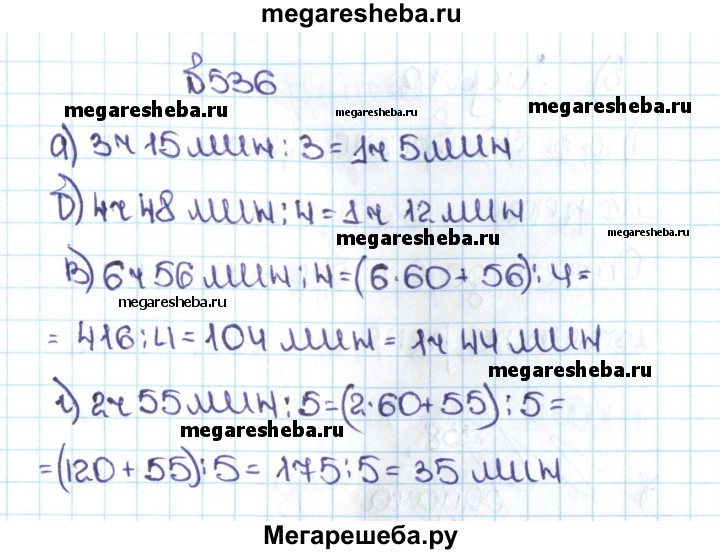 megaresheba.ru
№536
megaresheba.ru megaresheba.ru megaresheba.ru
а) 3ч 15мин : 3 = 1ч 5мин
б) 4ч 48 мин : 4 = 1ч 12 мин
megaresheba.ru megaresheba.ru
в) 6ч 56 мин : 4 = (6·60 + 56) : 4 =
megaresheba.ru
= 416 : 4 = 104 мин = 1ч 44 мин
megaresheba.ru
г) 2ч 55 мин : 5 = (2·60 + 55) : 5 =
megaresheba.ru megaresheba.ru
= (120 + 55) : 5 = 175 : 5 = 35 мин
Мегарешеба.ру